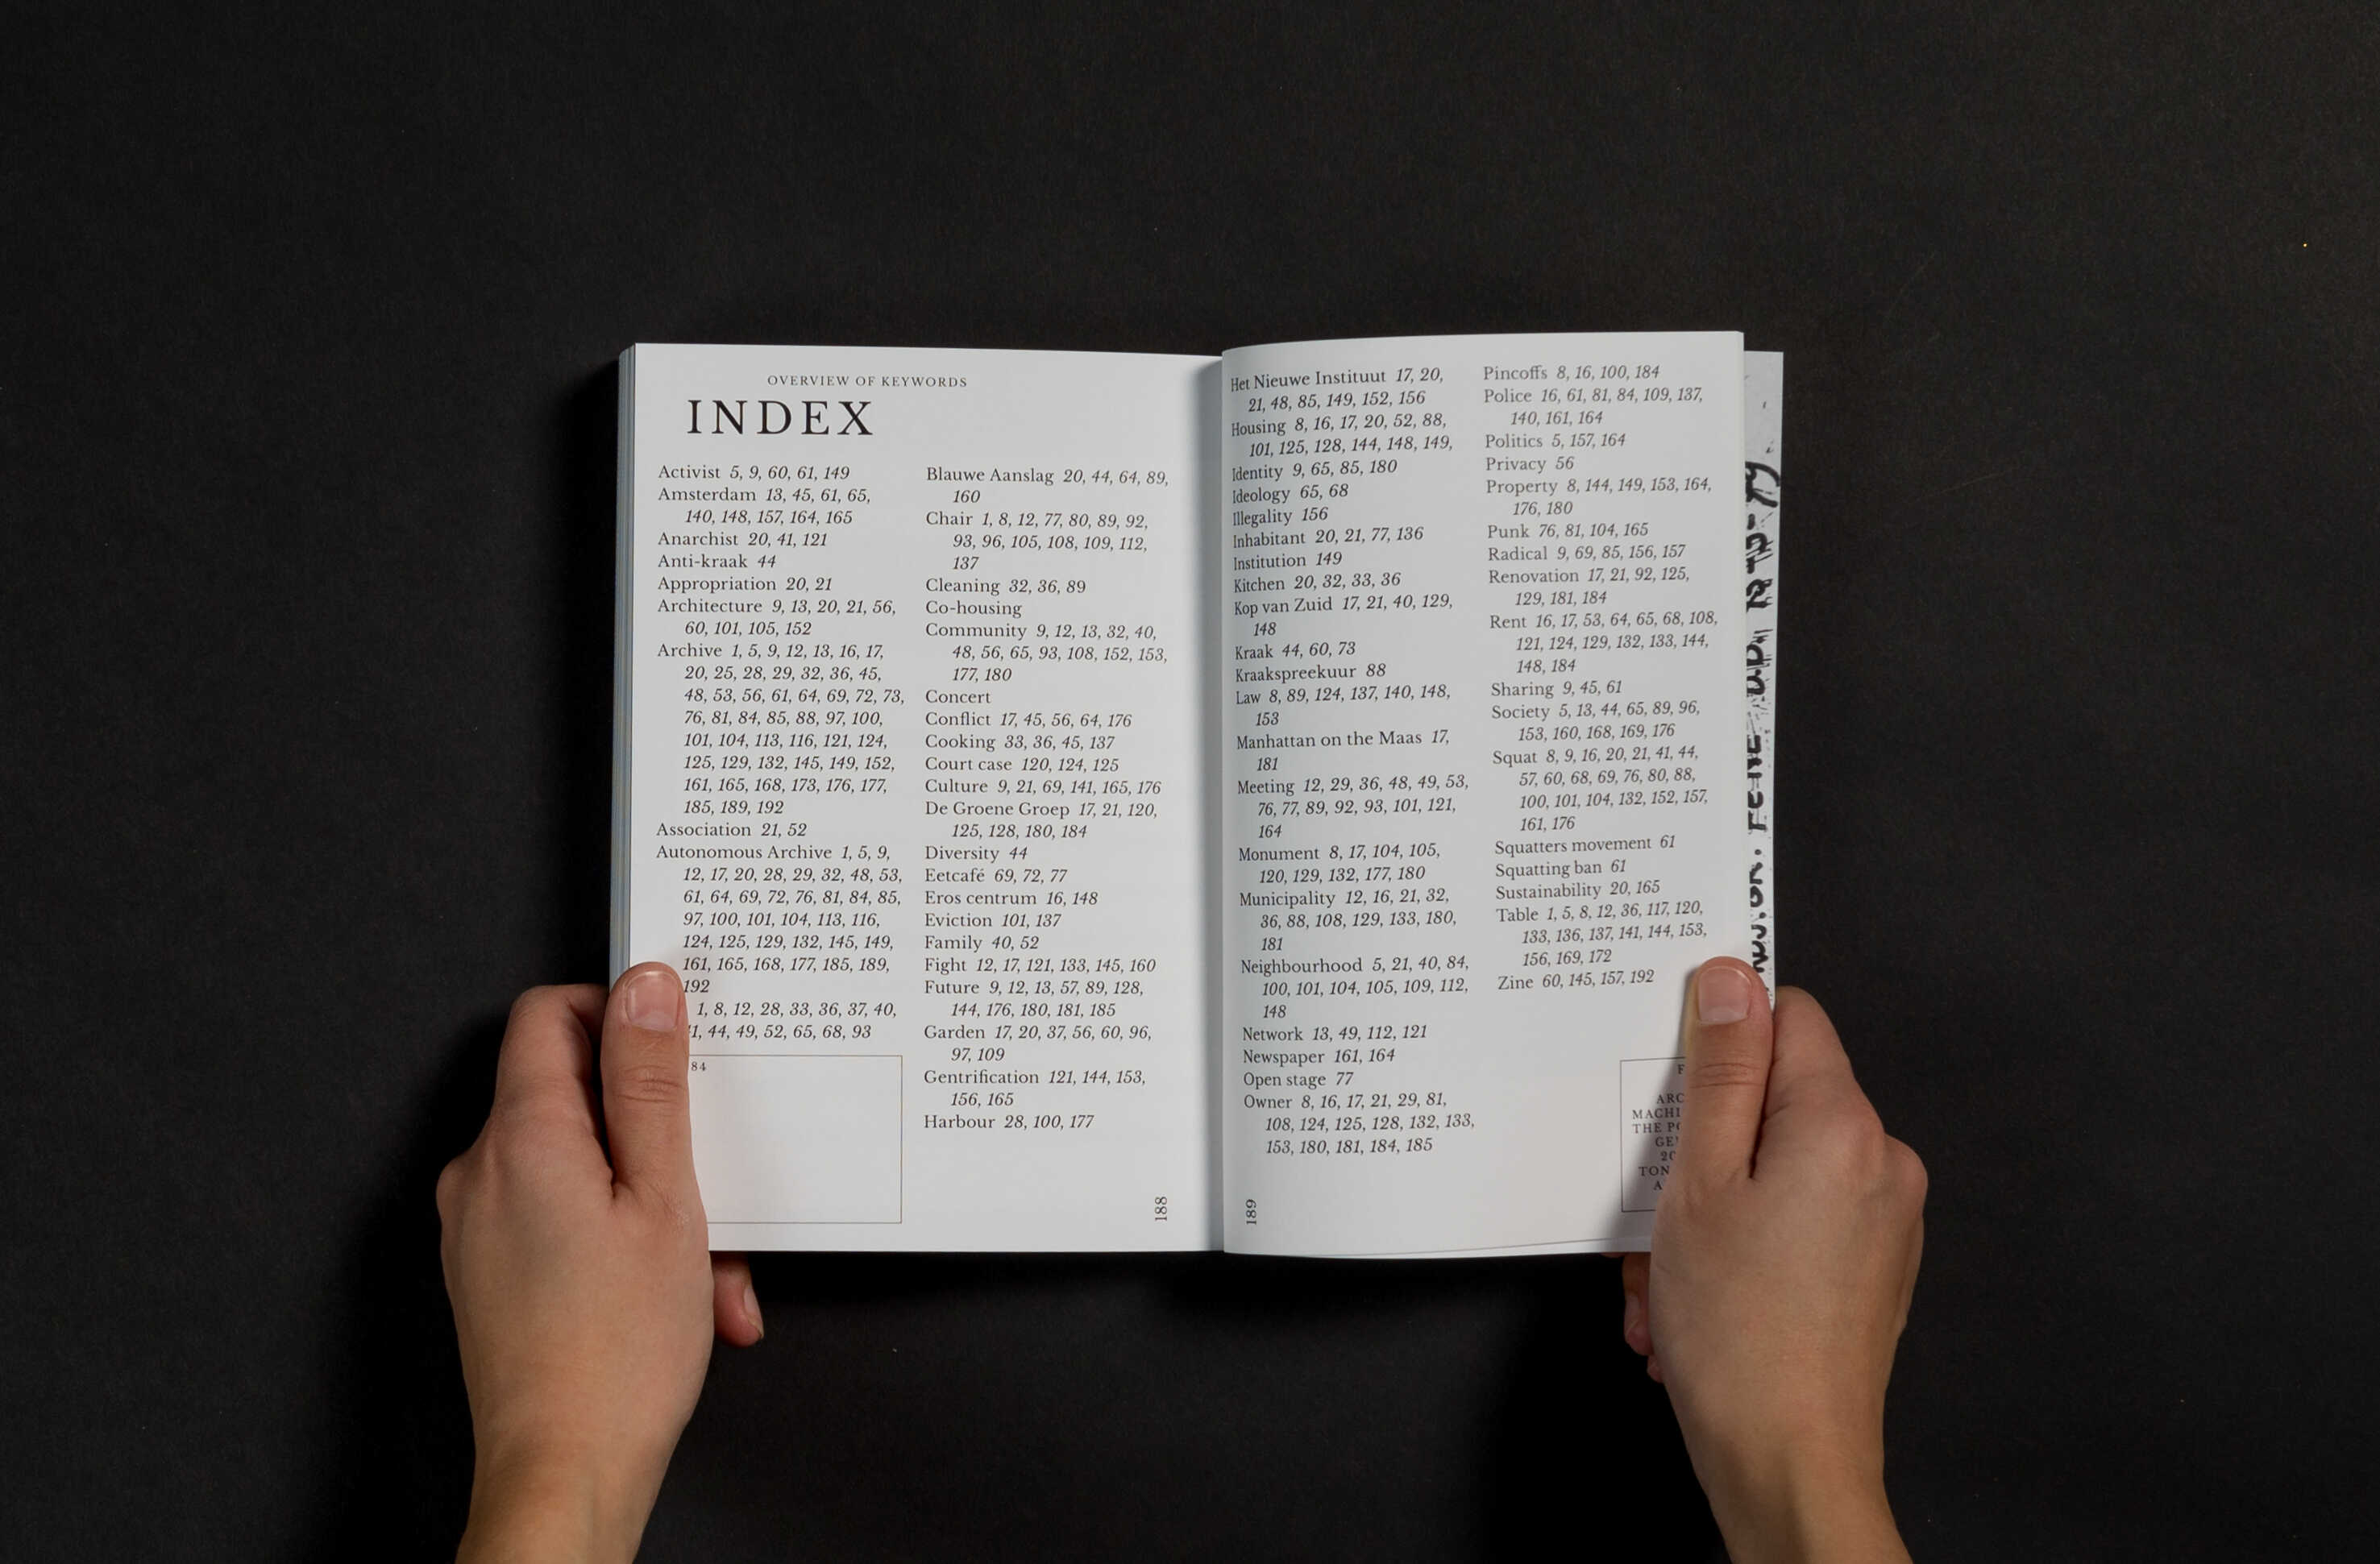 OVERVIEW OF KEYWORDS
INDEX
Activist 5, 9, 60, 61, 149
Amsterdam 13, 45, 61, 65,
140, 148, 157, 164, 165
Anarchist 20, 41, 121
Anti-kraak 44
Appropriation 20, 21
Architecture 9, 13, 20, 21, 56,
60, 101, 105, 152
Archive 1, 5, 9, 12, 13, 16, 17,
20, 25, 28, 29, 32, 36, 45,
48, 53, 56, 61, 64, 69, 72, 73,
76, 81, 84, 85, 88, 97, 100,
101, 104, 113, 116, 121, 124,
125, 129, 132, 145, 149, 152,
161, 165, 168, 173, 176, 177,
185, 189, 192
Association 21, 52
Autonomous Archive 1, 5, 9,
12, 17, 20, 28, 29, 32, 48, 53,
61, 64, 69, 72, 76, 81, 84, 85,
97, 100, 101, 104, 113, 116,
124, 125, 129, 132, 145, 149,
161, 165, 168, 177, 185, 189,
192
1, 8, 12, 28, 33, 36, 37, 40,
44, 49, 52, 65, 68, 93
84
Blauwe Aanslag 20, 44, 64, 89,
160
Chair 1, 8, 12, 77, 80, 89, 92,
93, 96, 105, 108, 109, 112,
137
Cleaning 32, 36, 89
Co-housing
Community 9, 12, 13, 32, 40,
48, 56, 65, 93, 108, 152, 153,
177, 180
Concert
Conflict 17, 45, 56, 64, 176
Cooking 33, 36, 45, 137
Court case 120, 124, 125
Culture 9, 21, 69, 141, 165, 176
De Groene Groep 17, 21, 120,
125, 128, 180, 184
Diversity 44
Eetcafé 69, 72, 77
Eros centrum 16, 148
Eviction 101, 137
Family 40, 52
Fight 12, 17, 121, 133, 145, 160
Future 9, 12, 13, 57, 89, 128,
144, 176, 180, 181, 185
Garden 17, 20, 37, 56, 60, 96,
97, 109
Gentrification 121, 144, 153,
156, 165
Harbour 28, 100, 177
188
Het Nieuwe Instituut 17, 20,
21, 48, 85, 149, 152, 156
Housing 8, 16, 17, 20, 52, 88,
101, 125, 128, 144, 148, 149,
Identity 9, 65, 85, 180
Ideology 65, 68
Illegality 156
Inhabitant 20, 21, 77, 136
Institution 149
Kitchen 20, 32, 33, 36
Kop van Zuid 17, 21, 40, 129,
148
Kraak 44, 60, 73
Kraakspreekuur 88
Law 8, 89, 124, 137, 140, 148,
153
Manhattan on the Maas 17,
181
Meeting 12, 29, 36, 48, 49, 53,
76, 77, 89, 92, 93, 101, 121,
164
Monument 8, 17, 104, 105,
120, 129, 132, 177, 180
Municipality 12, 16, 21, 32,
36, 88, 108, 129, 133, 180,
181
Neighbourhood 5, 21, 40, 84,
100, 101, 104, 105, 109, 112,
148
Network 13, 49, 112, 121
Newspaper 161, 164
Open stage 77
Owner 8, 16, 17, 21, 29, 81,
108, 124, 125, 128, 132, 133,
153, 180, 181, 184, 185
189
Pincoffs 8, 16, 100, 184
Police 16, 61, 81, 84, 109, 137,
140, 161, 164
Politics 5, 157, 164
Privacy 56
Property 8, 144, 149, 153, 164,
176, 180
Punk 76, 81, 104, 165
Radical 9, 69, 85, 156, 157
Renovation 17, 21, 92, 125,
129, 181, 184
Rent 16, 17, 53, 64, 65, 68, 108,
121, 124, 129, 132, 133, 144,
148, 184
Sharing 9, 45, 61
Society 5, 13, 44, 65, 89, 96,
153, 160, 168, 169, 176
Squat 8, 9, 16, 20, 21, 41, 44,
57, 60, 68, 69, 76, 80, 88,
100, 101, 104, 132, 152, 157,
161, 176
Squatters movement 61
Squatting ban 61
Sustainability 20, 165
Table 1, 5, 8, 12, 36, 117, 120,
133, 136, 137, 141, 144, 153,
156, 169, 172
Zine 60, 145, 157, 192
THE